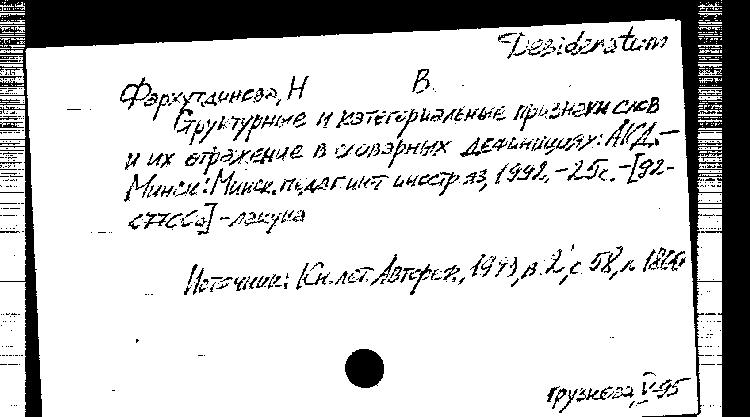 Desideratum
Фархутдинова, Н В.
Структурные и категориальные признаки слов
и их отражение в словарных дефинициях: АКД. –
Минск: Минск. пед. ин-т иностр. яз, 1992. – 25с. – [92-
] – лакуна
Источник: Кн. лет. Автореф., 1993, в. 2, с 58, п.
Грузнова, V-95